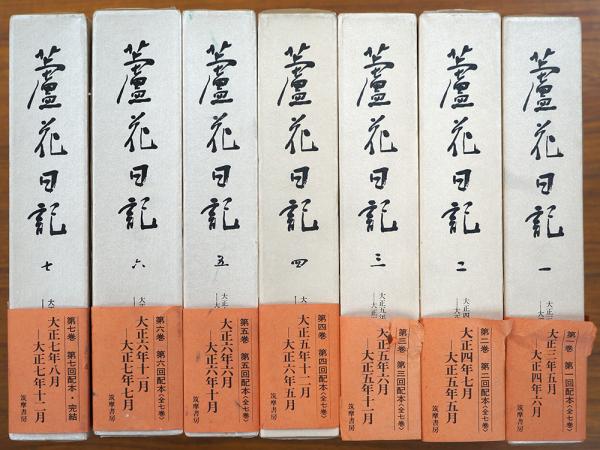 蘆花日記 一
第一巻 第一回配本
大正三年五月
―大正四年六月
筑摩書房
蘆花日記 二
大正四
第二巻 第二回配本〈全七巻〉
大正四年七月
―大正五年五月
筑摩書房
蘆花日記 三
大正五
第三巻 第三回配本〈全七巻〉
大正五年六月
―大正五年十一月
筑摩書房
蘆花日記 四
大正
第四巻 第四回配本〈全七巻〉
大正五年十二月
―大正六年五月
筑摩書房
蘆花日記 五
大正
第五巻 第五回配本〈全七巻〉
大正六年六月
―大正六年十月
筑摩書房
蘆花日記 六
大
第六巻 第六回配本〈全七巻〉
大正六年十一月
―大正七年七月
筑摩書房
蘆花日記 七
大
第七巻 第七回配本・完結
大正七年八月
―大正七年十二月
筑摩書房